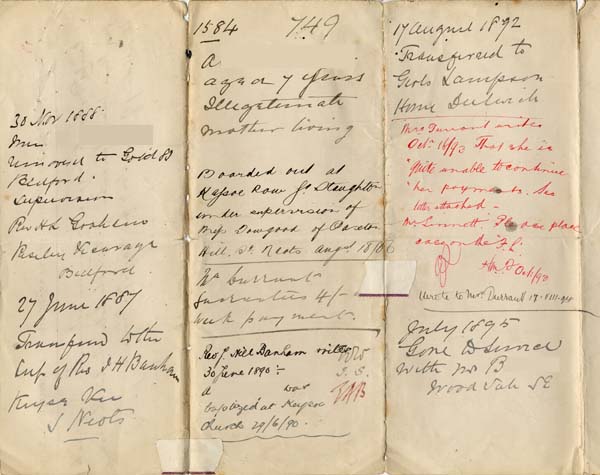 30 Nov 1888
Mrs
removed to Gold B
Bedford
Supervision
Rev H.L. Graham
Bedford
27 June 1889
Transferred to the
Sup of Rev J H Banham
Keysoe Vic
St Neots
1584 749
A
aged 7 years
Illegitimate
mother living
Boarded out at
Keysoe Row Gt Staughton
under supervision of
Hill, St. Neots Augst 18/86
Mrs Durrant
Guarantees 4/-
week payment
Revd J. Neil Banham writes
30 June 1890 :-
A was
baptized at Keysoe
Church 29/6/90.
17 August 1892
Transferred to
Girls Lampson
Home Dulwich
Mrs Durrant writes
Oct 16/93 That she is
"quite unable to continue
"her payments. See
letter attached -
Please place
case on the F.L.
Wrote to Mrs Durrant 17.VIII.94
July 1895
Gone to Service
with Mrs B
Wood Vale SE